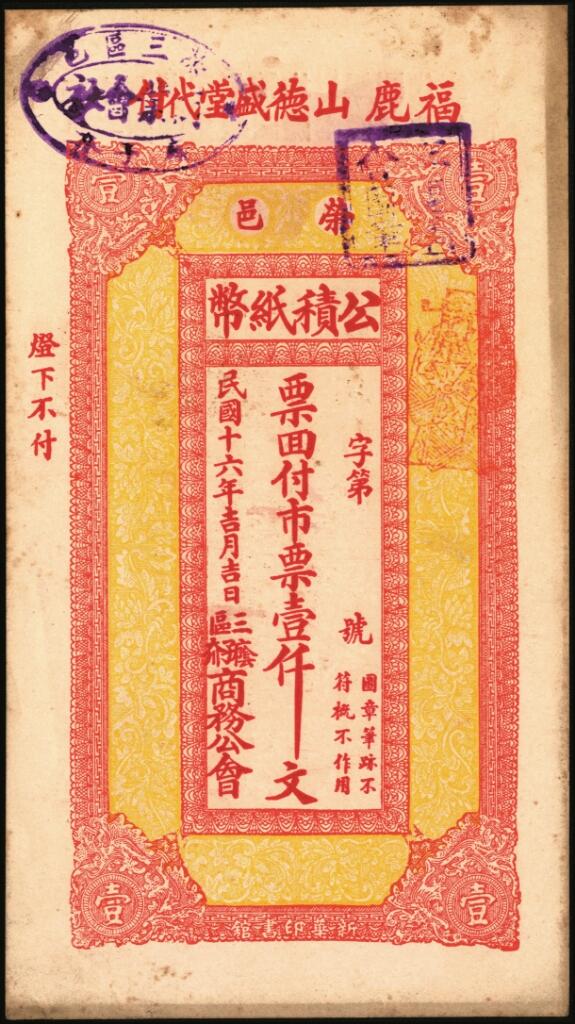 福鹿山德盛堂代付
榮邑
公積紙幣
壹
壹
字第 號
圖章筆跡不
符概不作用
票囬付市票壹仟文
民國十六年吉月吉日
三區廕子夼商務公會
燈下不付
壹
壹
新華印書館